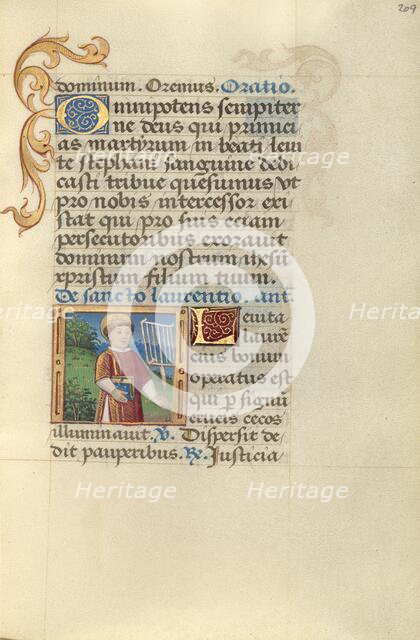 209
dominum. Oremus. Oratio.
Omnipotens sempiter
ne deus qui primici
as martirum in beati leui
te stephani sanguine dedi
casti tribue quesumus vt
pro nobis intercessor exi
stat qui pro suis eciam
persecutoribus exorauit
dominum nostrum ihesu
xpristum filium tuum.
De sancto laurentio. ant
Leuita
lauren
cius bonum
operatus est
qui p signum
crucis cecos
illuminauit. V. Dispersit de
dit pauperibus. Re. Justicia
Heritage Heritage Heritage
Heritage Heritage Heritage
Heritage Heritage